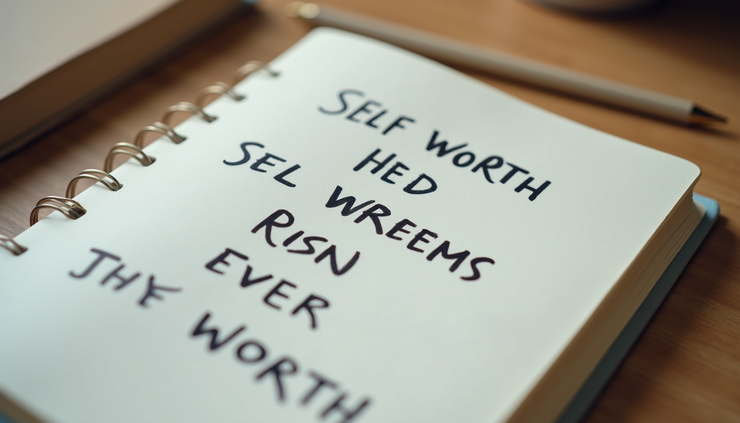 SELF WORTH
HED
SEL WREEMS
RISN
EVER
JHY WORTH